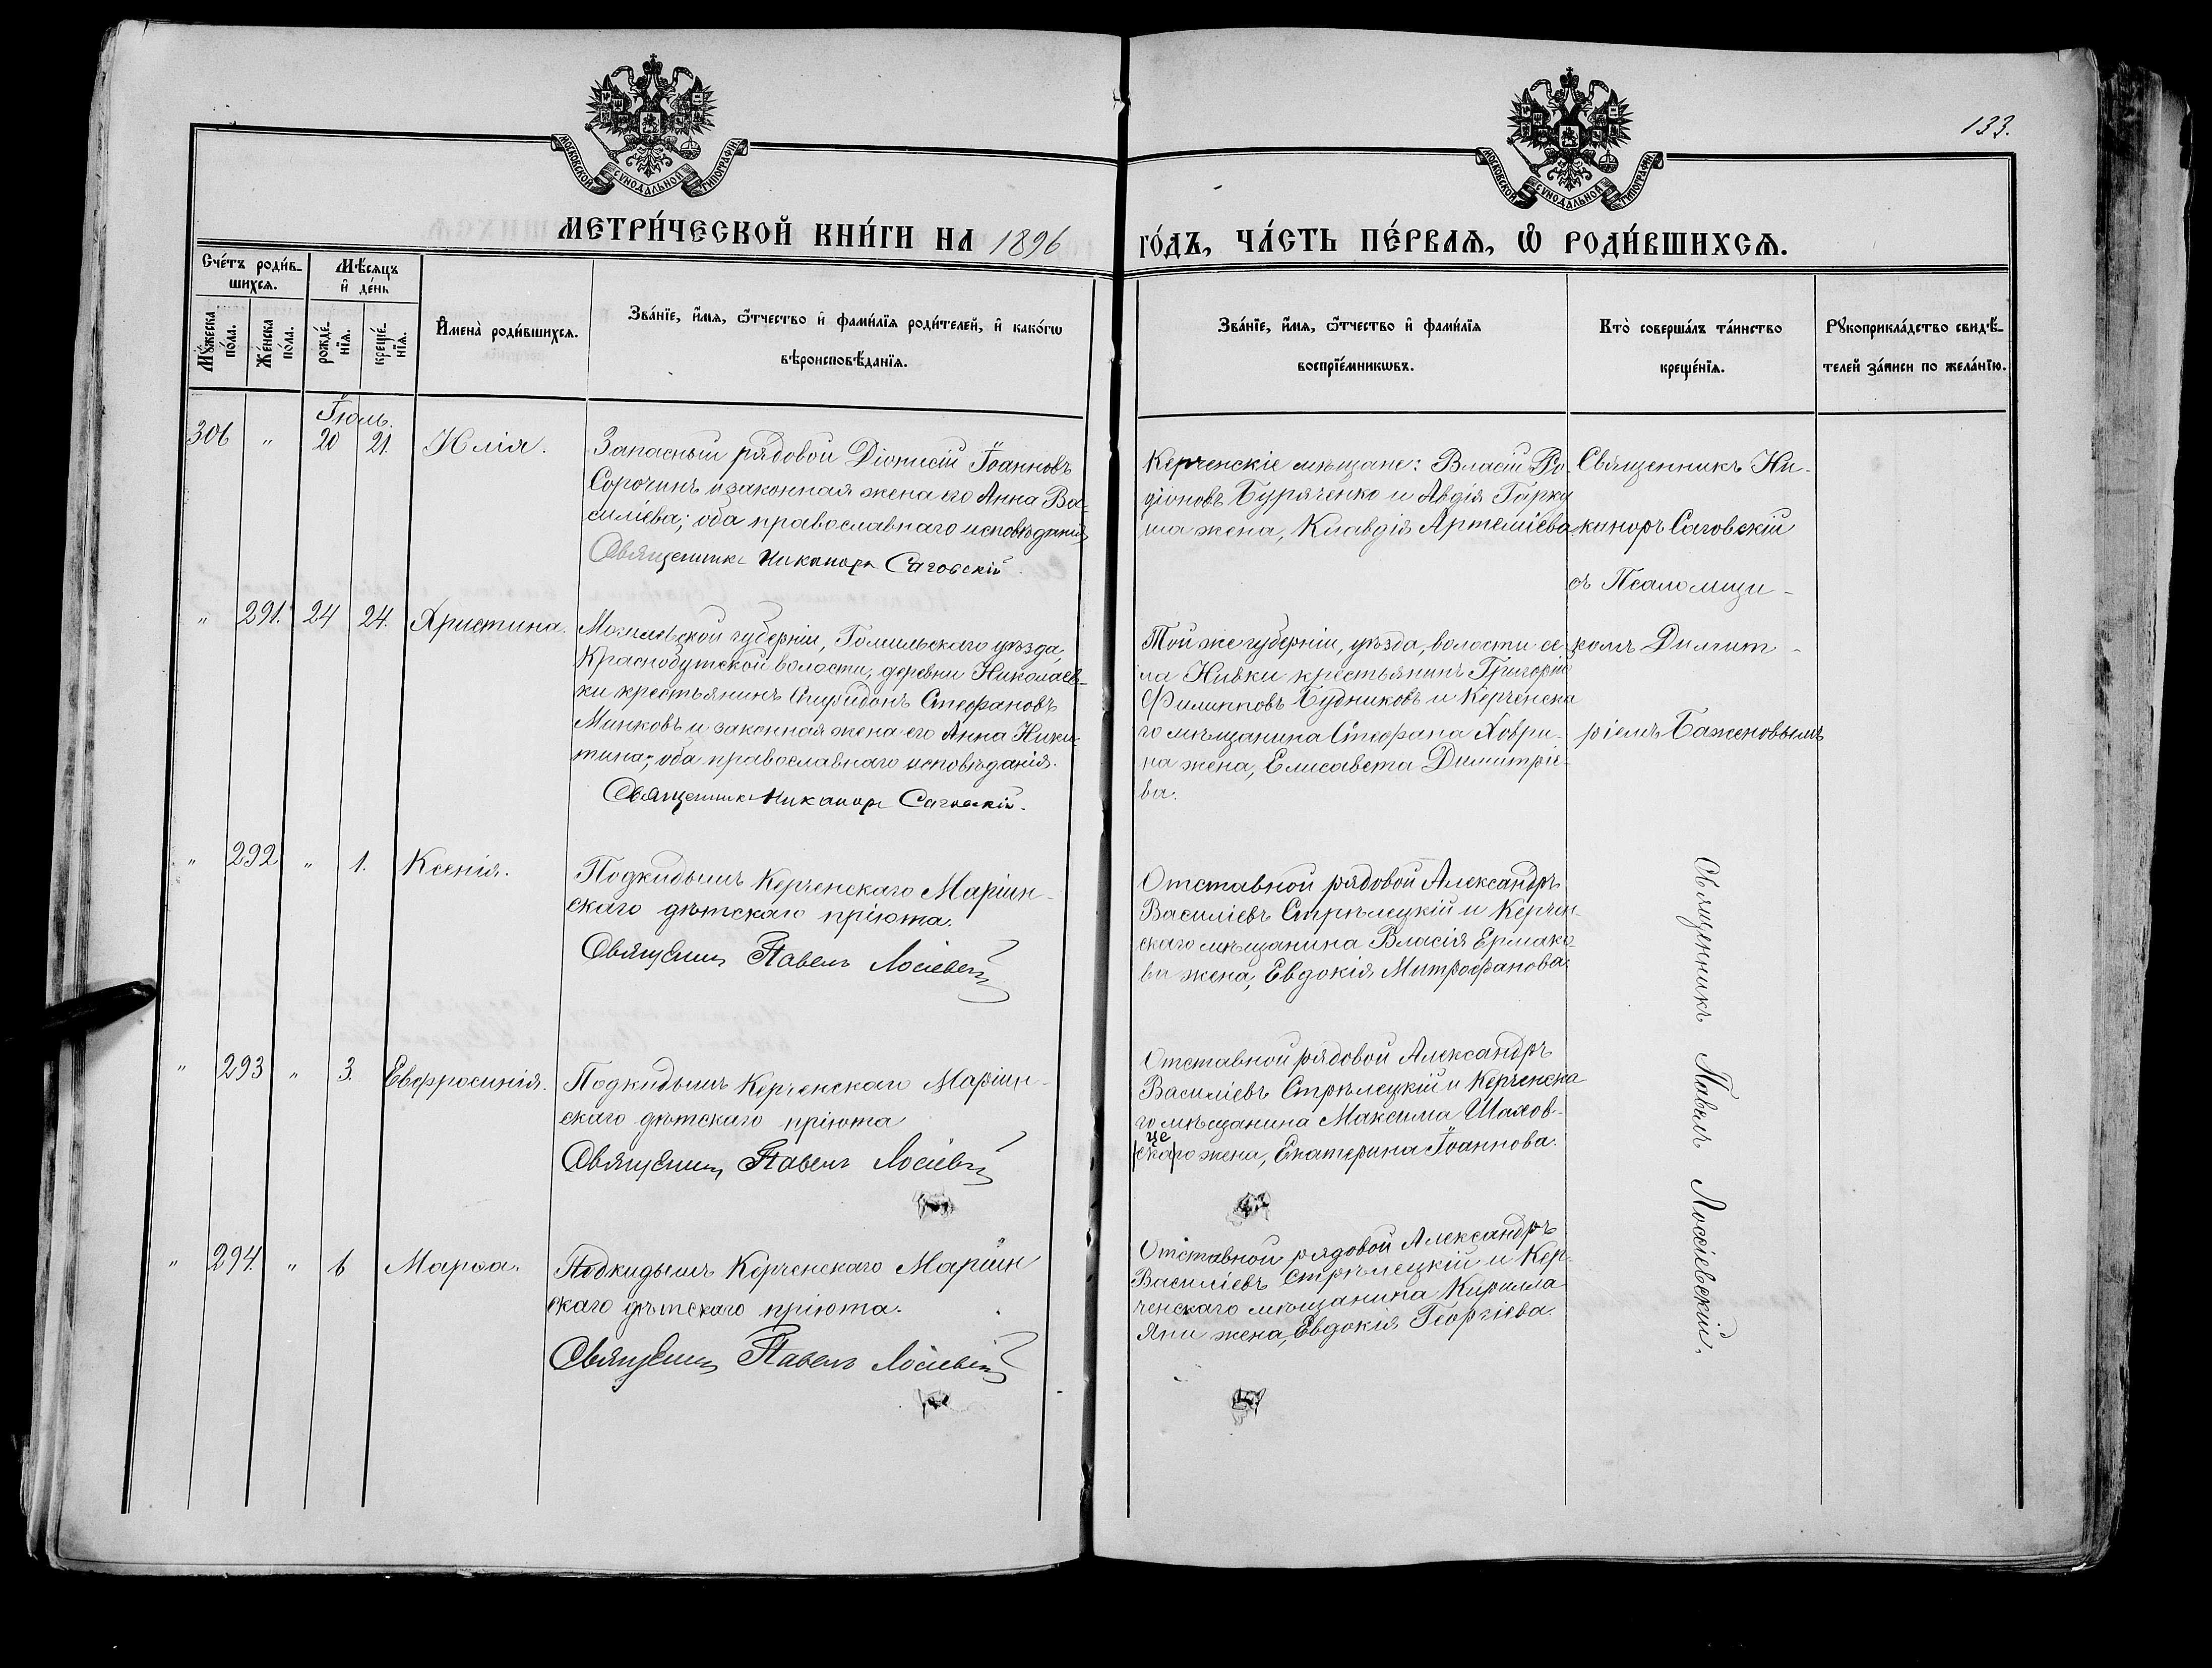 133.
МОСКОВСКОЙ СѴНОДАЛЬНОЙ ТИПОГРАФІИ
МОСКОВСКОЙ СѴНОДАЛЬНОЙ ТИПОГРАФІИ
МЕТРИ́ЧЕСКОЙ КНИ́ГИ НА 1896 ГО́ДЪ, ЧА́СТЬ ПЕ́РВАѦ, Ѡ҆ РОДИ́ВШИХСѦ.
Сче́тъ роди́в-
шихсѧ.
Мꙋ́жеска по́ла.
Же́нска по́ла.
Мѣ́сѧцъ
и҆ де́нь
рожде́-
нїѧ.
креще́-
нїѧ.
И҆мена̀ роди́вшихсѧ.
Зва́нїе, и҆́мѧ, ѻ҆́тчество и҆ фами́лїѧ роди́телей, и҆ како́гѡ
вѣроисповѣ́данїѧ.
Зва́нїе, и҆́мѧ, ѻ҆́тчество и҆ фами́лїѧ
воспрїе́мникѡвъ.
Кто̀ соверша́лъ та́инство
креще́нїѧ.
Рꙋкоприкла́дство свидѣ́-
телей за́писи по жела́нїю.
Іюль.
306 " 20 21. Илія.
Запасный рядовой Діонисій Іоанновъ
Сорочинъ и законная жена его Анна Ва-
силіева; оба православнаго исповѣданія
Священникъ Никаноръ Саговскій.
Керченскіе мѣщане: Власій Ро-
діоновъ Буряченко и Авдія Гарку
ша жена, Клавдія Артеміева
Священникъ Ни-
каноръ Саговскій
съ Псаломщи-
комъ Димит-
ріемъ Баженовымъ
" 291. 24 24. Христина.
Могилевской губерніи, Гомильскаго уѣзда,
Краснобутской волости, деревни Николаев-
ки крестьянинъ Спиридонъ Стефановъ
Минковъ и законная жена его Анна Ники-
тина; оба православнаго исповѣданія.
Священникъ Никаноръ Саговскій.
Той же губерніи, уѣзда, волости се-
ла Нивки крестьянинъ Григорій
Филипповъ Будниковъ и Керченска
го мѣщанина Стефана Ховри-
на жена, Елисавета Димитріе-
ва.
" 292 " 1. Ксенія.
Подкидышъ Керченскаго Маріин-
скаго дѣтскаго пріюта.
Священникъ Павелъ Лосіевскій
Отставной рядовой Александръ
Василіевъ Стрѣлецкій и Керчен-
скаго мѣщанина Власія Ермако-
ва жена, Евдокія Митрофанова.
Священникъ Павелъ Лосіевскій.
" 293 " 3. Евфросинія.
Подкидышъ Керченскаго Маріин-
скаго дѣтскаго пріюта
Священникъ Павелъ Лосіевскій
Отставной рядовой Александръ
Василіевъ Стрѣлецкій и Керченска
го мѣщанина Максима Шахов-
це
скаго жена, Екатерина Іоаннова.
" 294. " 6 Марѳа.
Подкидышъ Керченскаго Маріин
скаго дѣтскаго пріюта.
Священникъ Павелъ Лосіевскій
Отставной рядовой Александръ
Василіевъ Стрѣлецкій и Кер-
ченскаго мѣщанина Кирилла
Яни жена, Евдокія Георгіева.